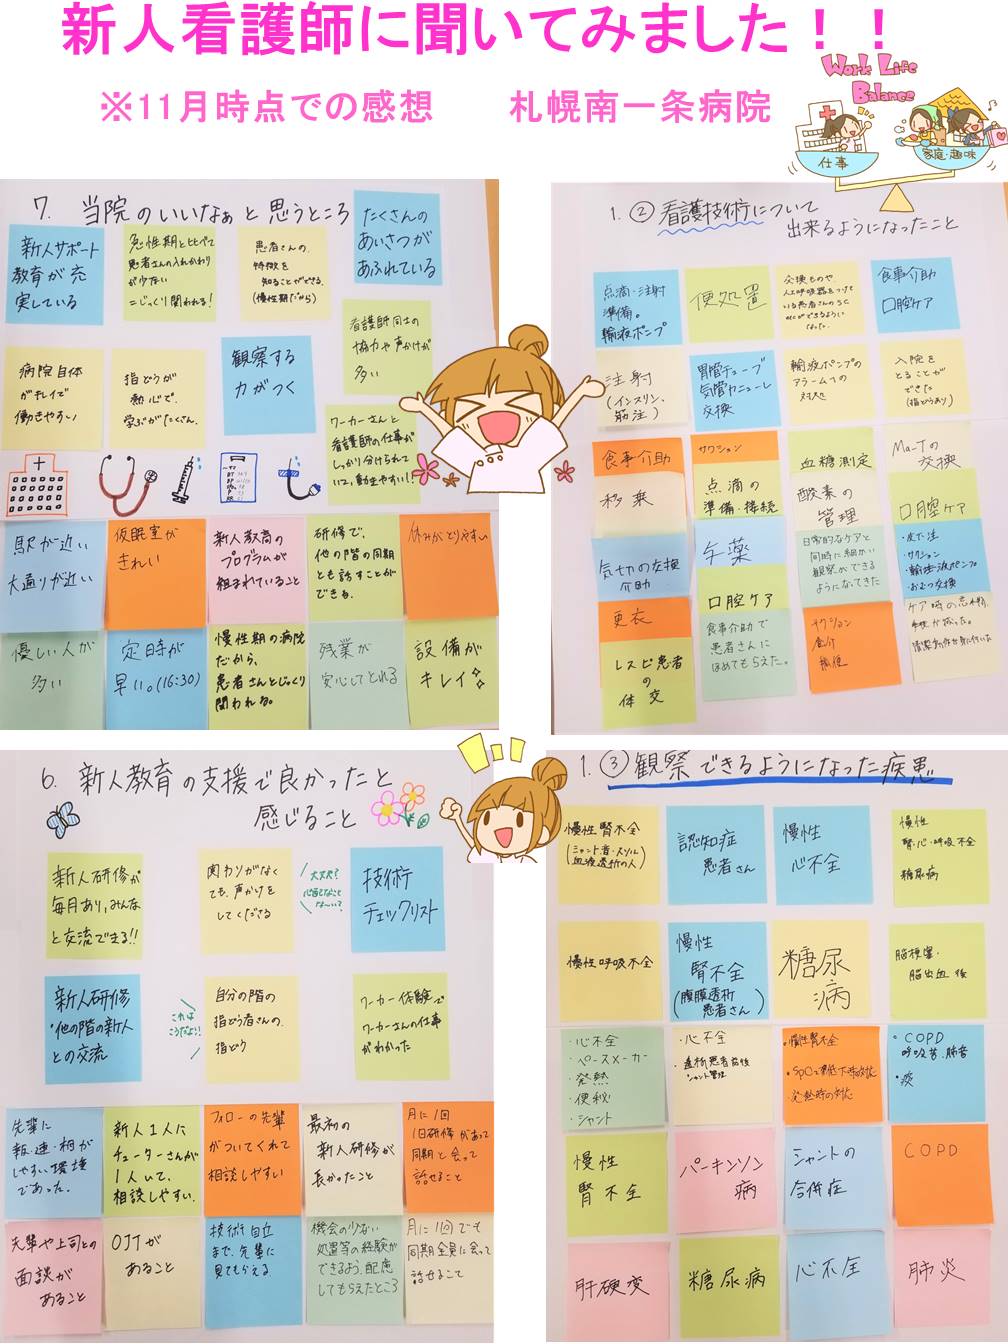 新人看護師に聞いてみました！！
※11月時点での感想　　札幌南一条病院
Work Life
Balance
仕事
家庭・趣味
7. 当院のいいなぁと思うところ
新人サポート
教育が充
実している
急性期と比べて
患者さんの入れかわり
が少ない
=じっくり関われる！
患者さんの
特徴を
知ることができる。
(慢性期だから)
たくさんの
あいさつが
あふれている
病院自体
がキレイで
働きやすい
指どうが
熱心で、
学ぶがたくさん。
観察する
力がつく
看護師同士の
協力や声かけが
多い
ワーカーさんと
看護師の仕事が
しっかり分けられて
いて、動きやすい！！
駅が近い
大通りが近い
仮眠室が
きれい
新人教育の
プログラムが
組まれていること
研修で、
他の階の同期
とも話すことが
できる。
休みがとりやすい
優しい人が
多い
定時が
早い。(16:30)
慢性期の病院
だから、
患者さんとじっくり
関われる。
残業が
安心してとれる
設備が
キレイ
1. ② 看護技術について
出来るようになったこと
点滴・注射
準備。
輸液ポンプ
便処置
交換ものや
人工呼吸器をつけて
いる患者さんの
ができるように
なった。
食事介助
口腔ケア
注射
(インスリン、
筋注)
胃管チューブ
気管カニューレ
交換
輸液ポンプの
アラームへの
対応
入院を
とることが
できた
(指どうあり)
食事介助
移乗
サクション
点滴の
準備・接続
血糖測定
酸素の
管理
Ma-Tの
交換
口腔ケア
気切の交換
介助
与薬
口腔ケア
日常的なケアと
同時に細かい
観察ができる
ようになってきた
・皮下注
・サクション
・輸液ポンプ
・おむつ交換
更衣
レスピ患者
の
体交
食事介助で
患者さんに
ほめてもらえた。
サクション
食介
摘便
ケア時の忘れ物、
6. 新人教育の支援で良かったと
感じること
新人研修が
毎月あり、みんな
と交流できる!!
関わりがなく
ても、声かけを
してくださる
大丈夫？
技術
チェックリスト
新人研修
・他の階の新人
との交流
これは
こうだよ！
自分の階の
指どう者さんの、
指どう
ワーカー体験で
ワーカーさんの仕事
がわかった
先輩に
報・連・相が
しやすい環境
であった。
新人1人に
チューターさんが
1人いて、
相談しやすい。
フォローの先輩
がついてくれて
相談しやすい
最初の
新人研修が
長かったこと
月に1回
1日研修があって
同期と会って
話せること
先輩や上司との
面談が
あること
OJTが
あること
技術自立
まで、先輩に
見てもらえる
機会の少ない
処置等の経験が
できるよう、配慮
してもらえたところ
月に1回でも
同期全員に会って
話せること
1. ③ 観察できるようになった疾患
慢性腎不全
(シャント音・スリル
血液透析の人)
認知症
患者さん
慢性
心不全
慢性
腎・心・呼吸不全
糖尿病
慢性呼吸不全
慢性
腎不全
(腹膜透析
患者さん)
糖尿
病
脳梗塞・
脳出血後
・心不全
・ペースメーカー
・発熱
・便秘
・シャント
・心不全
・透析患者前後
シャント管理
・慢性腎不全
・SpO2値低下時の対応
・発熱時の対応
・COPD
呼吸苦、肺音
・痰
慢性
腎不全
パーキンソン
病
シャントの
合併症
COPD
肝硬変
糖尿病
心不全
肺炎